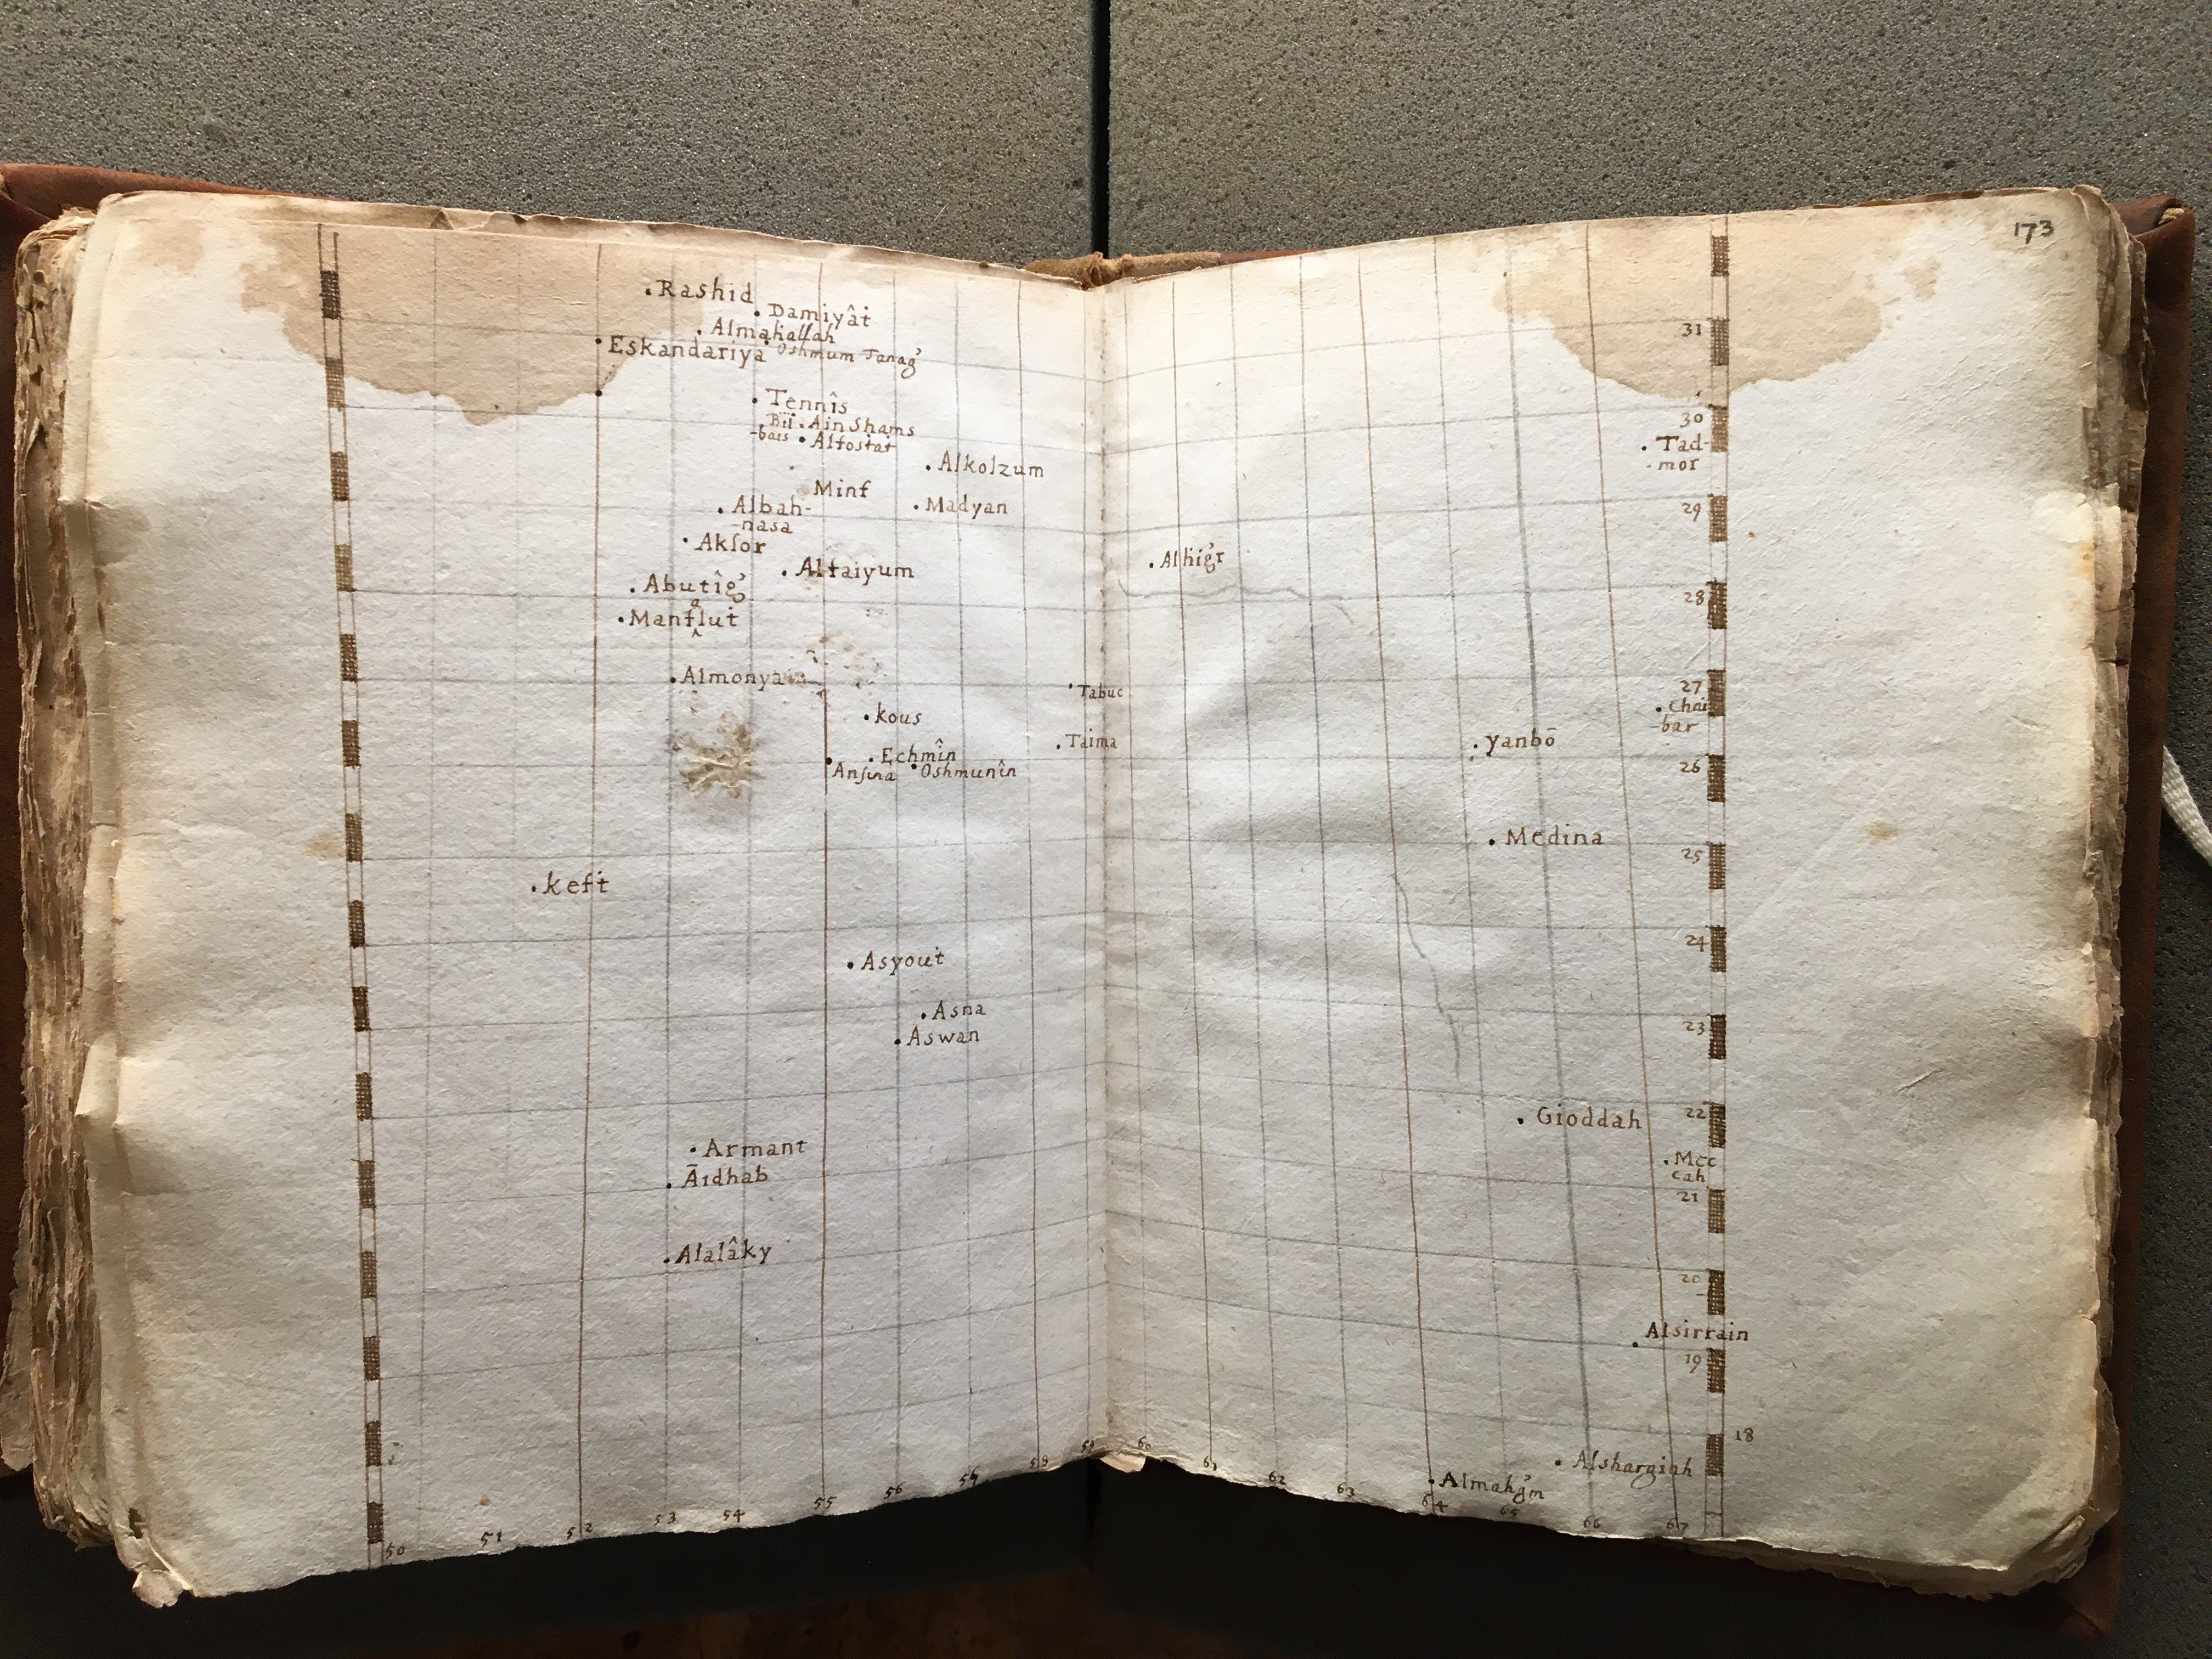 173
.Rashid
.Damiyât
.Almahallah
.Eskandariya Oshmum Tanag'
31
.Tennîs
30
Bil .Ain Shams
-bais .Alfostat
.Tad-
-mor
.Alkolzum
Minf
.Albah-
-nasa
.Madyan
29
.Akſor
.Alhig'r
.Alfaiyum
.Abutîg'
28
a
.Manflut
^
.Almonya
.Tabuc
27
.Chai
-bar
.kous
.Taima
.yanbō
.Echmîn
.Anſina .Oshmunîn
26
.Medina
25
.keft
24
.Asyout
.Asna
.Aswan
23
.Gioddah
22
.Armant
.Mec
cah
.Āidhab
21
.Alalâky
20
Alsirrain
19
18
.Alshargiah
.Almahg'm
50 51 52 53 54 55 56 57 58 59 60 61 62 63 64 65 66 67